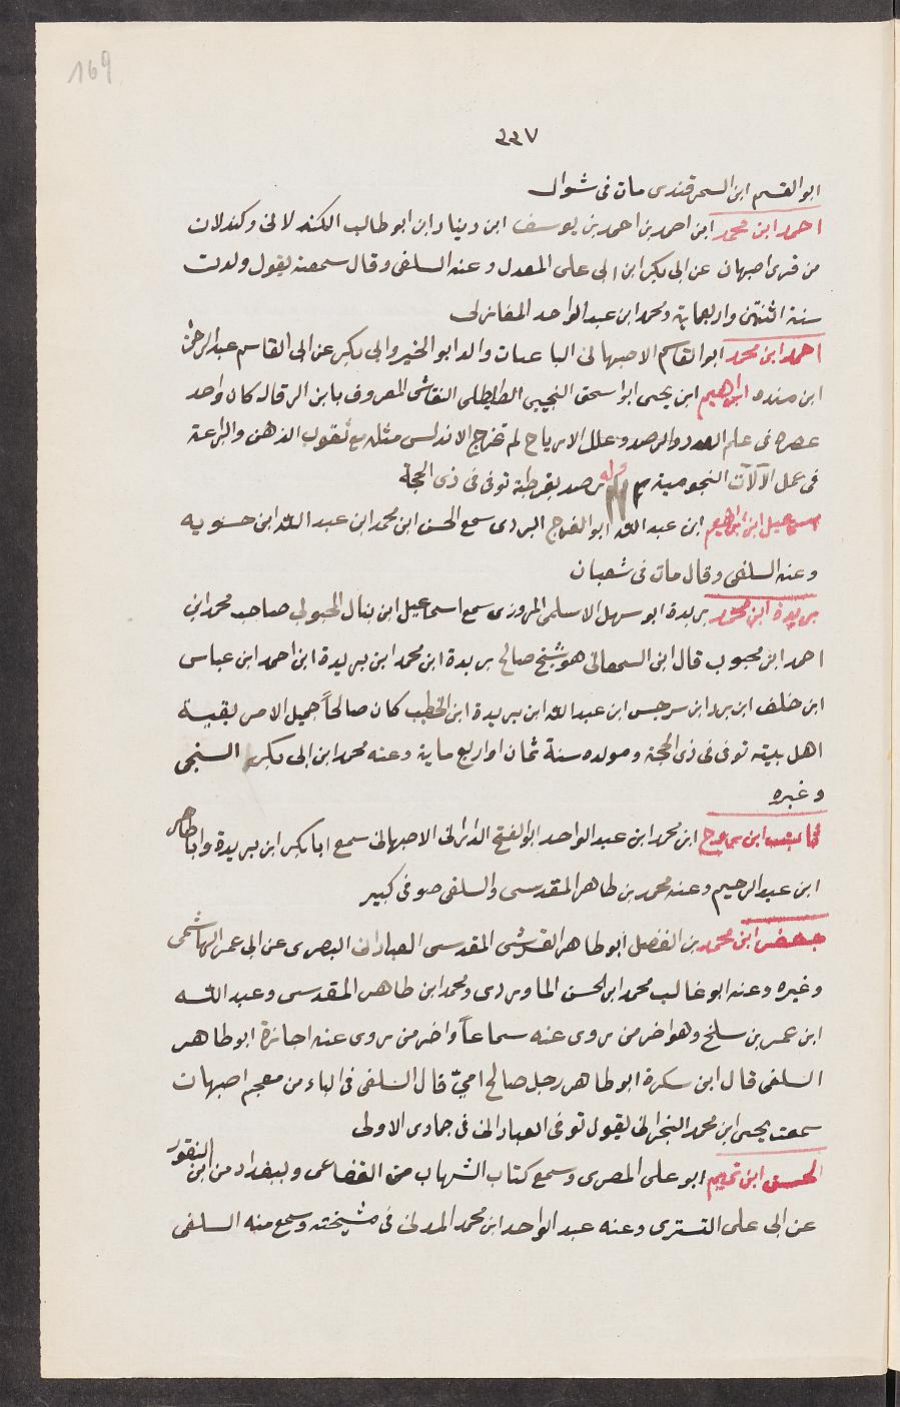 169
٢٢٧
ابو القسم ابن السمرقندى مات فى شوال
احمد ابن محمد ابن احمد بن احمد بن يوسف ابن دينار ابن ابو طالب الكندلانى وكندلان
من قرى اصبهان عن ابى بكر ابن ابى على المعدل وعنه السلفى وقال سمعته يقول ولدت
سنة اثنتين واربعماية ومحمد ابن عبد الواحد المغازلى
احمد ابن محمد ابو القاسم الاصبهانى الباغبان والد ابو الخير وابى بكر عن ابى القاسم عبد الرحمن
ابن منده ابراهيم ابن يحيى ابو اسحق التجيبى الطليطلى النقاش المعروف بابن الزرقاله كان واحد
عصره فى علم العدد والرصد وعلل الازياح لم تخرج الاندلس مثله مع ثقوب الذهن والبراعة
فى عمل الآلات النجومية وله رصد بقرطبة توفى فى ذى الحجة
اسماعيل ابن ابراهيم ابن عبد الله ابو الفرج البردى سمع الحسن ابن محمد ابن عبد الله ابن حسنويه
وعنه السلفى وقال مات فى شعبان
بريدة ابن محمد بريدة ابو سهل الاسلمى المروزى سمع اسماعيل ابن ينال المحبوبى صاحب محمد ابن
احمد ابن محبوب قال ابن السمعانى هو شيخ صالح بريدة ابن محمد ابن بريدة ابن احمد ابن عباس
ابن خلف ابن برد ابن سرجس ابن عبد الله ابن بريدة ابن الخطيب كان صالحاً جميل الامر بقية
اهل بيته توفى فى ذى الحجة ومولده سنة ثمان او اربع ماية وعنه محمد ابن ابى بكر السنجى
وغيره
ابن محمد ابن عبد الواحد ابو الفتح الاصبهانى سمع ابا بكر ابن بريدة وابا طاهر
ابن عبد الرحيم وعنه محمد بن طاهر المقدسى والسلفى صوفى كبير
جعفر ابن محمد بن الفضل ابو طاهر القرشى المقدسى العبادانى البصرى عن ابى عمر الهاشمى
وغيره وعنه ابو غالب محمد ابن الحسن الماوردى ومحمد ابن طاهر المقدسى وعبد الله
ابن عمر بن سليخ وهو اخر من روى عنه سماعاً واخر من روى عنه اجازة ابو طاهر
السلفى قال ابن سكرة ابو طاهر رجل صالح اميّ قال السلفى فى الباء من معجم اصبهان
سمعت يحيى ابن محمد البحرانى يقول توفى العبادانى فى جمادى الاولى
الحسن ابن تميم ابو على المصرى وسمع كتاب الشهاب من القضاعى وببغداد من ابن النقور
عن ابى على التسترى وعنه عبد الواحد ابن محمد المدنى فى مشيخته وسمع منه السلفى